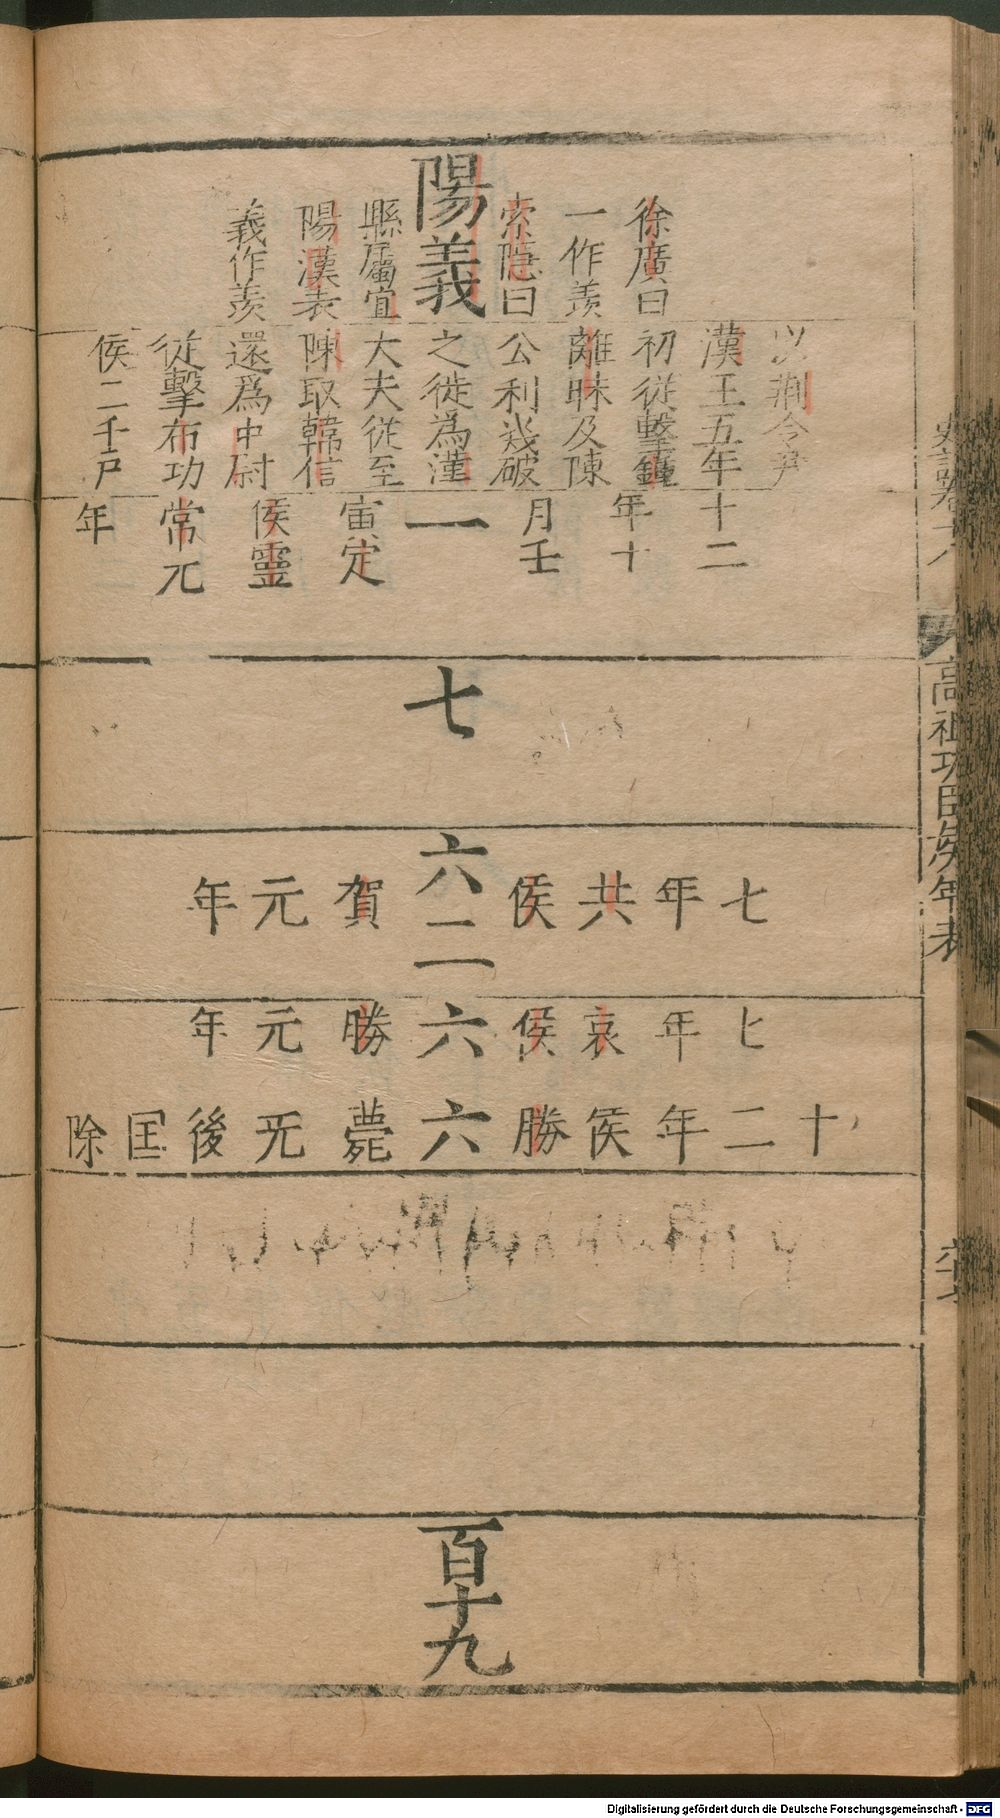 史記卷十八
高祖功臣侯年表
徐廣曰
一作羨
索隱曰
陽義
縣屬宜
陽漢表
義作羨
以荆令尹
漢王五年
初従擊鍾
離昧及陳
公利幾破
之徙為漢
大夫従至
陳取韓信
還爲中尉
従擊布功
侯二千戸
十二
年十
月壬
一
寅定
侯靈
常元
年
七
七年共侯六二賀元年
七年哀侯六勝元年
十二年侯勝六薨无後囯除
百十九
Digitalisierung gefördert durch die Deutsche Forschungsgemeinschaft - DFG